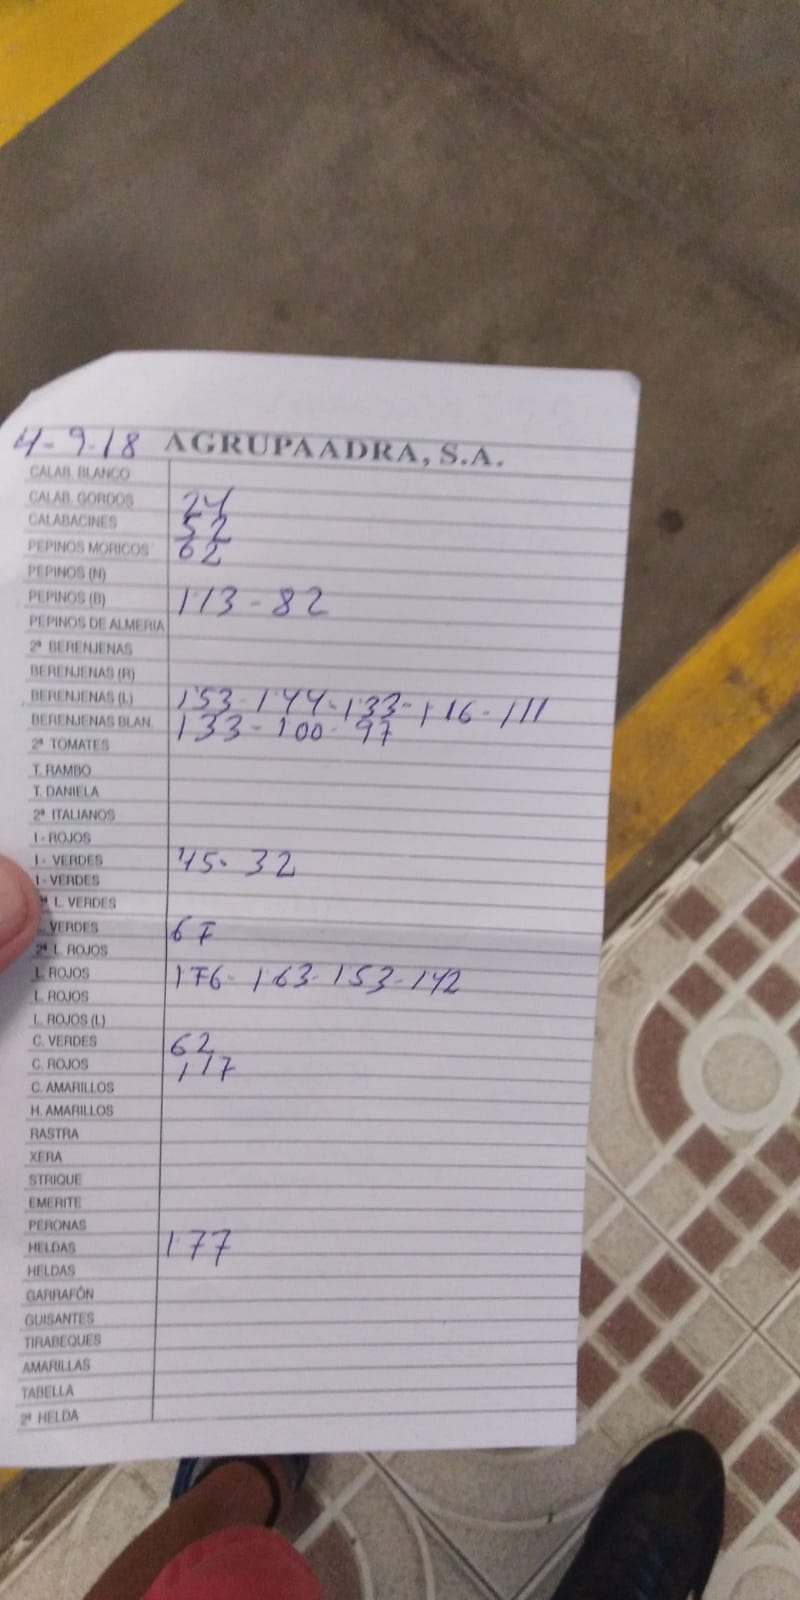 4-9-18 AGRUPAADRA, S.A.
CALAB. BLANCO
CALAB. GORDOS 24
CALABACINES 52
PEPINOS MORICOS 62
PEPINOS (N)
PEPINOS (B) 1'13 - 82
PEPINOS DE ALMERIA
2ª BERENJENAS
BERENJENAS (R)
BERENJENAS (L) 1'53 - 1'44 - 1'33 - 1'16 - 1'11
BERENJENAS BLAN. 1'33 - 1'00 - 97
2ª TOMATES
T. RAMBO
T. DANIELA
2ª ITALIANOS
I - ROJOS
I - VERDES 45 - 32
I - VERDES
L. VERDES
VERDES 67
2ª L. ROJOS
L. ROJOS 1'76 - 1'63 - 1'53 - 1'42
L. ROJOS
L. ROJOS (L)
C. VERDES 62
C. ROJOS 1'17
C. AMARILLOS
H. AMARILLOS
RASTRA
XERA
STRIQUE
EMERITE
PERONAS
HELDAS 1'77
HELDAS
GARRAFÓN
GUISANTES
TIRABEQUES
AMARILLAS
TABELLA
2ª HELDA